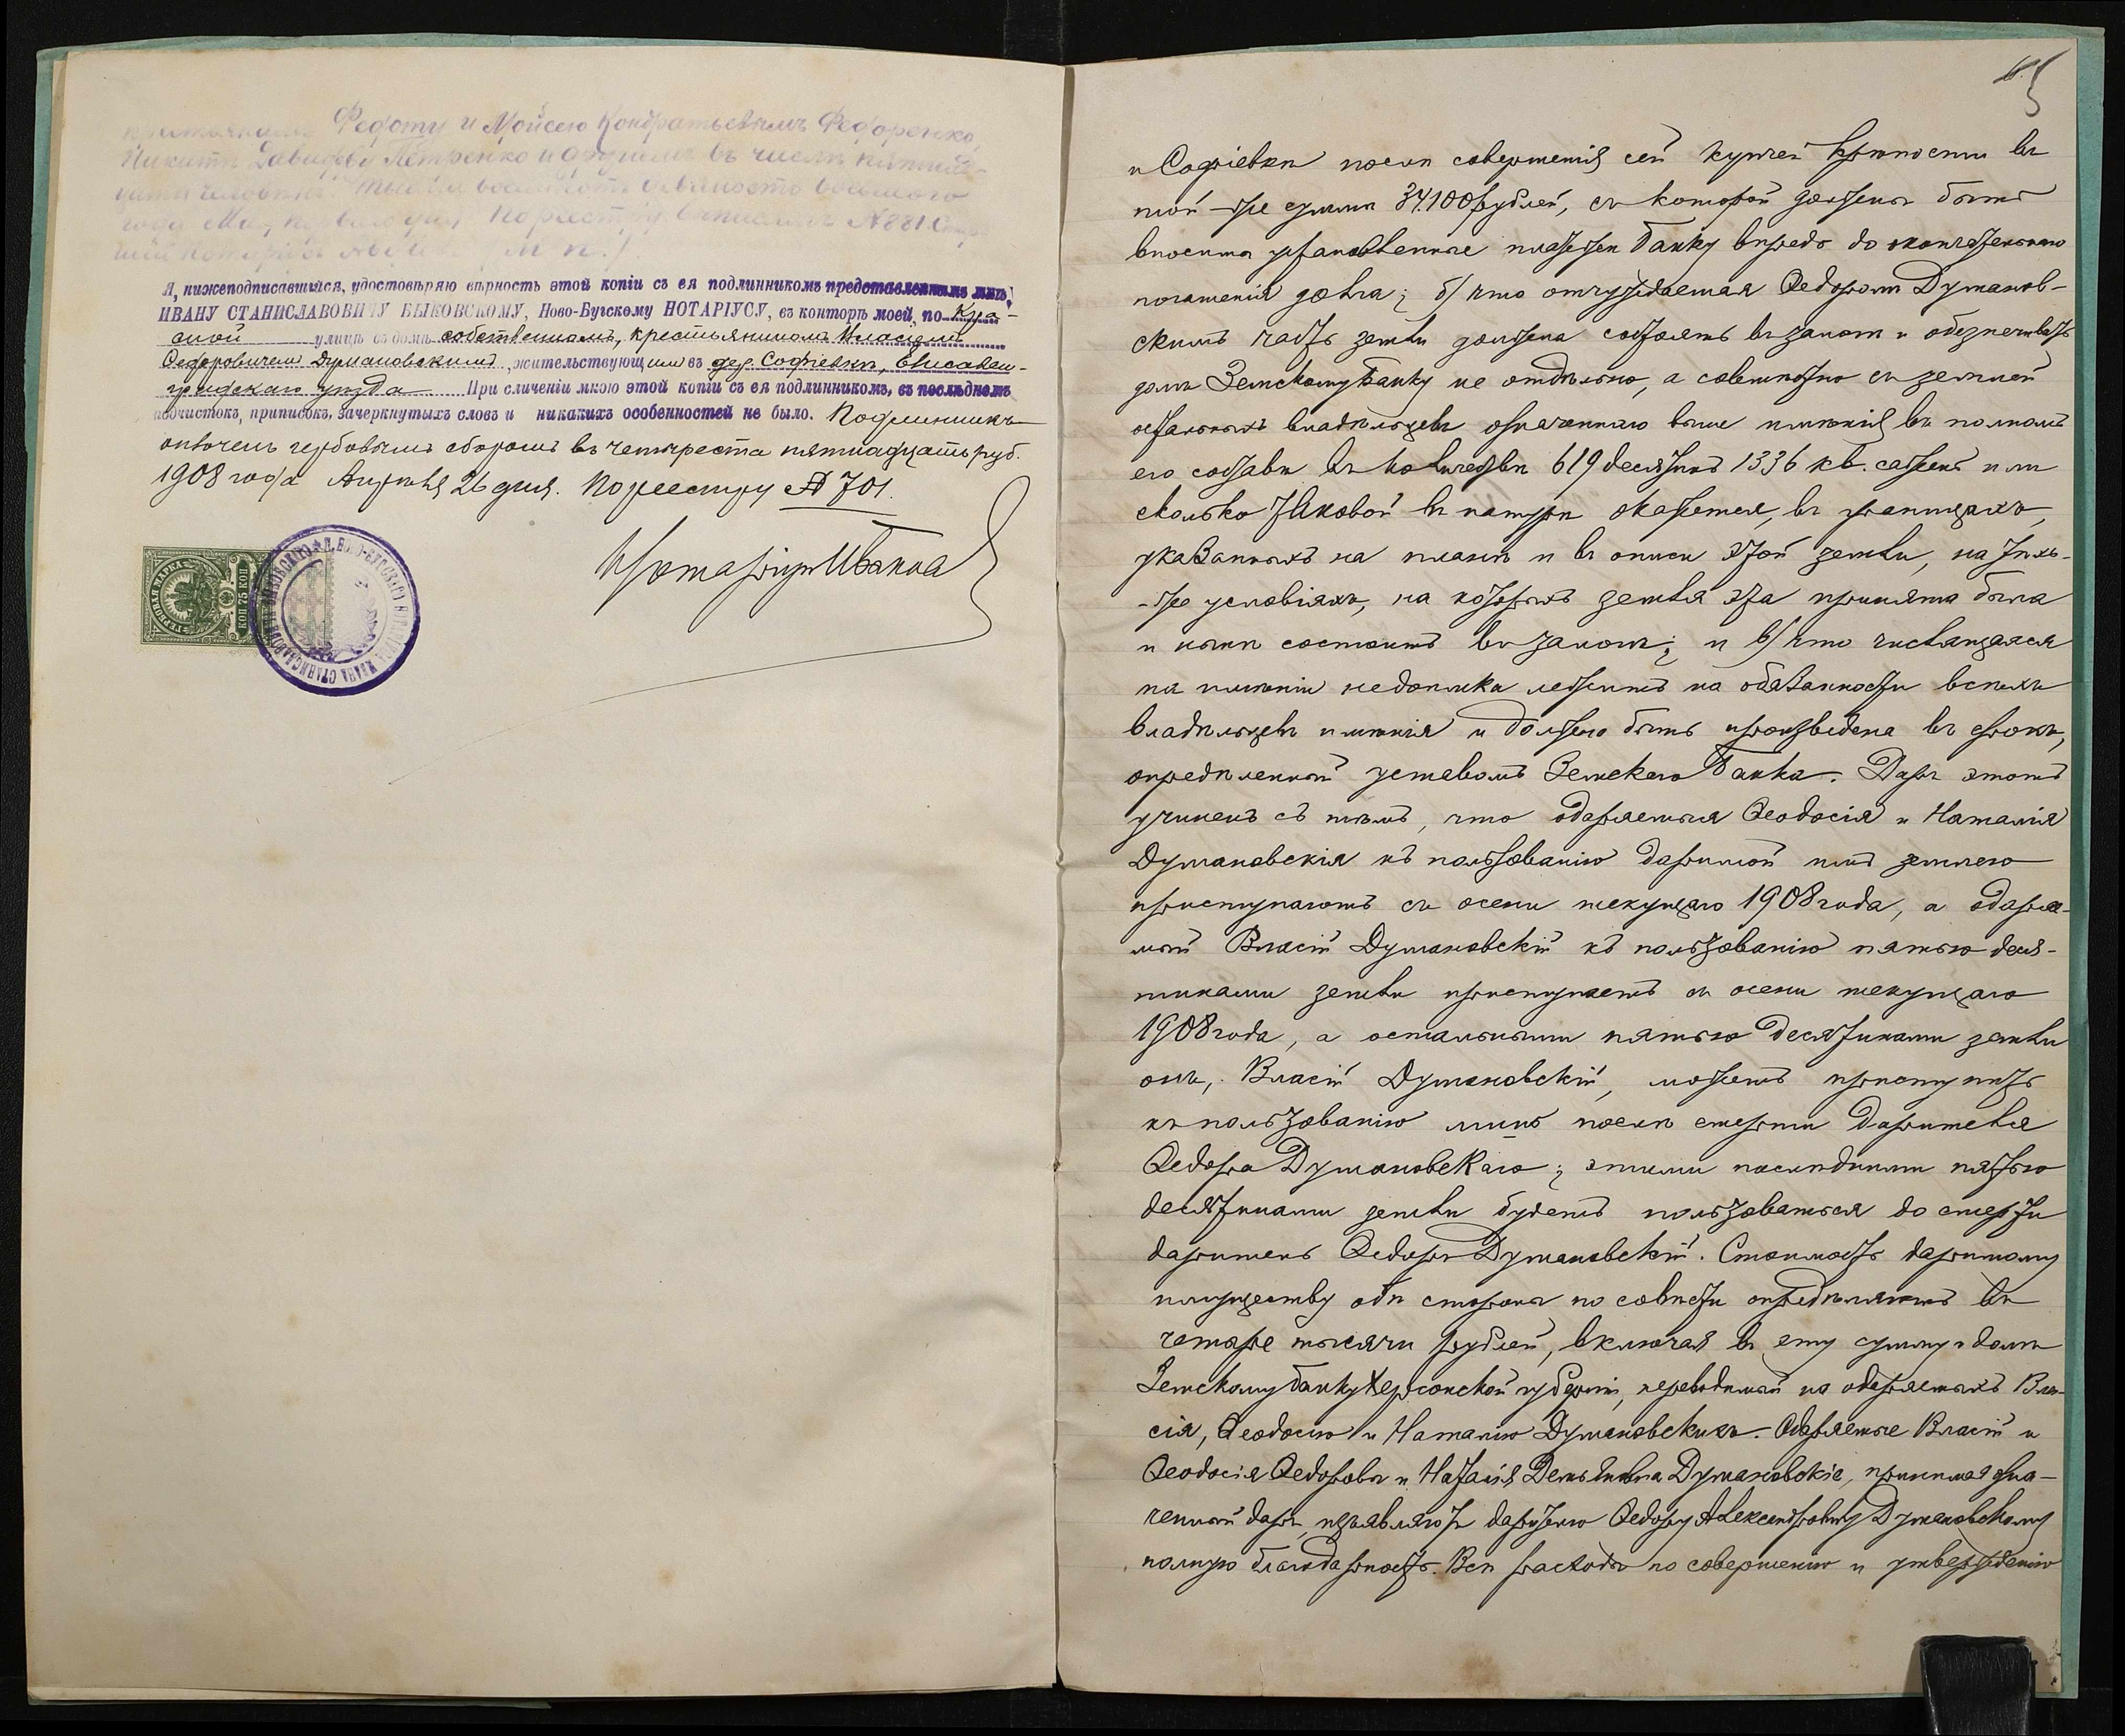 Федоту и Мойсею Кондратьевымъ Федоренко,
Никитѣ Давидову Петренко и другимъ въ числѣ пятнад-
цати человѣкъ. Тысяча восемьсотъ девяносто восьмого
года Мая перваго дня. По реестру № 881.
Я, нижеподписавшійся, удостовѣряю вѣрность этой копіи съ ея подлинникомъ представленнымъ мнѣ,
ИВАНУ СТАНИСЛАВОВИЧУ БЫКОВСКОМУ, Ново-Бугскому НОТАРІУСУ, въ конторѣ моей, по
улицѣ въ домѣ собственномъ, крестьяниномъ Власіемъ
Ѳедоровичемъ Думановскимъ, жительствующимъ въ дер. Софіевкѣ, Елисавет-
градскаго уѣзда. При сличеніи мною этой копіи съ ея подлинникомъ, въ послѣднемъ
подчистокъ, приписокъ, зачеркнутыхъ словъ и никакихъ особенностей не было. Подлинникъ
оплоченъ гербовымъ сборомъ въ четыреста пятнадцать руб.
1908 года Апрѣля 26 дня. По реестру № 701.
Нотаріусъ
ГЕРБОВАЯ МАРКА
75 КОП
5
и Софіевки послѣ совершенія сей купчей крѣпости въ
той-же суммѣ 34.100 рублей, съ которой должны быть
вносимы установленные платежи банку впредь до окончательнаго
погашенія долга; б/ что отчуждаемая Ѳедоромъ Думанов-
скимъ часть земли должна состоять въ залогѣ и обезпечивать
долгъ Земскому Банку не отдѣльно, а совмѣстно съ землей
остальныхъ владѣльцевъ означеннаго выше имѣнія въ полномъ
его составѣ въ количествѣ 619 десятинъ 1336 кв. сажень или
сколько таковой въ натурѣ окажется, въ границахъ,
указанныхъ на планѣ и въ описи этой земли, на тѣхъ-
-же условіяхъ, на которыхъ земля эта принята была
и нынѣ состоитъ въ залогѣ; и в/ что числящаяся
на имѣніи недоимка лежитъ на обязанности всѣхъ
владѣльцевъ имѣнія и должна быть произведена въ срокъ,
опредѣленный уставомъ Земскаго Банка. Даръ этотъ
учиненъ съ тѣмъ, что одаряемыя Ѳеодосія и Наталія
Думановскія къ пользованію даримой имъ землею
приступаютъ съ осени текущаго 1908 года, а одаряе-
мый Власій Думановскій къ пользованію пятью деся-
тинами земли приступаетъ съ осени текущаго
1908 года, а остальными пятью десятинами земли
онъ, Власій Думановскій, можетъ приступить
къ пользованію лишь послѣ смерти дарителя
Ѳедора Думановскаго; этими послѣдними пятью
десятинами земли будетъ пользоваться до смерти
даритель Ѳедоръ Думановскій. Стоимость даримому
имуществу обѣ стороны по совѣсти опредѣляютъ въ
четыре тысячи рублей, включая въ эту сумму и долгъ
Земскому банку Херсонской губерніи, переводимый на одаряемыхъ Вла-
сія, Ѳеодосію и Наталію Думановскихъ. Одаряемые Власій и
Ѳеодосія Ѳедоровы и Наталія Думановскіе, принимая озна-
ченный даръ, изъявляютъ дарителю Ѳедору Александровичу Думановскому
полную благодарность. Всѣ расходы по совершенію и утвержденію